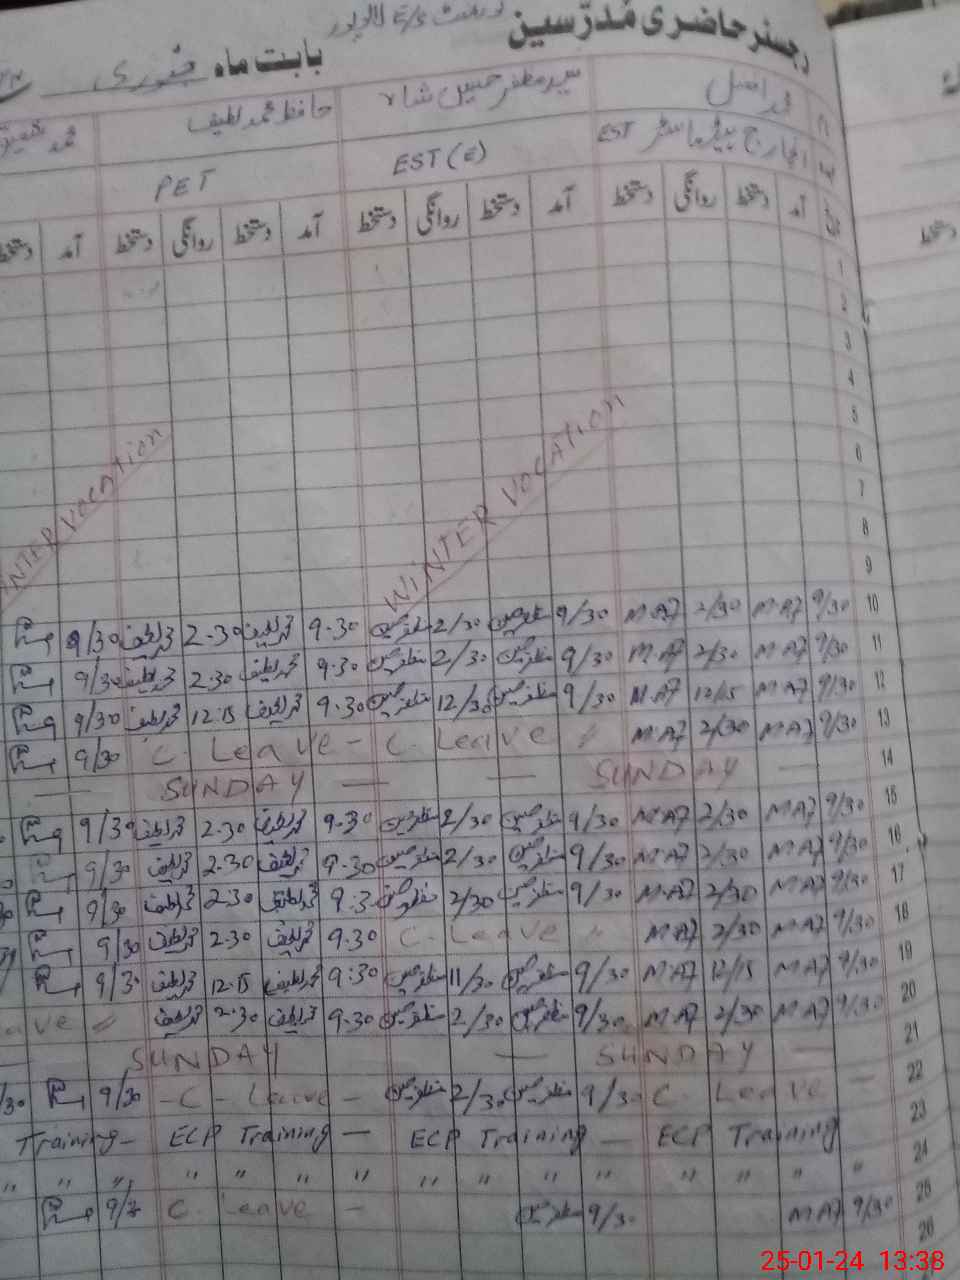 رجسٹر حاضری مدرّسین
بابت ماہ جنوری
محمد افضل سید مظفر حسین شاہ حافظ محمد لطیف محمد
انچارج ہیڈ ماسٹر EST EST (E) PET
تاریخ آمد دستخط روانگی دستخط آمد دستخط روانگی دستخط آمد دستخط روانگی دستخط آمد دستخط
دستخط
1
2
3
4
5
6
7
8
9
WINTER VOCATION
WINTER VOCATION
10 9/30 M.A7 2/30 M.A7 9/30 مظفر حسین 2/30 مظفر حسین 9.30 محمد لطیف 2.30 محمد لطیف 9/30
11 9/30 M.A7 2/30 M.A7 9/30 مظفر حسین 2/30 مظفر حسین 9.30 محمد لطیف 2.30 محمد لطیف 9/30
12 9/30 M.A7 12/15 M.A7 9/30 مظفر حسین 12/30 مظفر حسین 9.30 محمد لطیف 12.15 محمد لطیف 9/30
13 9/30 M.A7 2/30 M.A7 C. Leave C. Leave 9/30
14 SUNDAY SUNDAY
15 9/30 M.A7 2/30 M.A7 9/30 مظفر حسین 2/30 مظفر حسین 9.30 محمد لطیف 2.30 محمد لطیف 9/30
16 9/30 M.A7 2/30 M.A7 9/30 مظفر حسین 2/30 مظفر حسین 9.30 محمد لطیف 2.30 محمد لطیف 9/30
17 9/30 M.A7 2/30 M.A7 9/30 مظفر حسین 2/30 مظفر حسین 9.3 محمد لطیف 2.30 محمد لطیف 9/30
18 9/30 M.A7 2/30 M.A7 C. Leave 9.30 محمد لطیف 2.30 محمد لطیف 9/30
19 9/30 M.A7 12/15 M.A7 9/30 مظفر حسین 11/30 مظفر حسین 9.30 محمد لطیف 12.15 محمد لطیف 9/30
20 9/30 M.A7 2/30 M.A7 9/30 مظفر حسین 2/30 مظفر حسین 9.30 محمد لطیف 2.30 محمد لطیف
21 SUNDAY SUNDAY
22 C. Leave 9/30 مظفر حسین 2/30 مظفر حسین C. Leave 9/30
23 ECP Training ECP Training ECP Training Training
24 " " " " " " " " " " " "
25 9/30 M.A7 9/30 مظفر حسین C. Leave 9/30
26
25-01-24 13:38